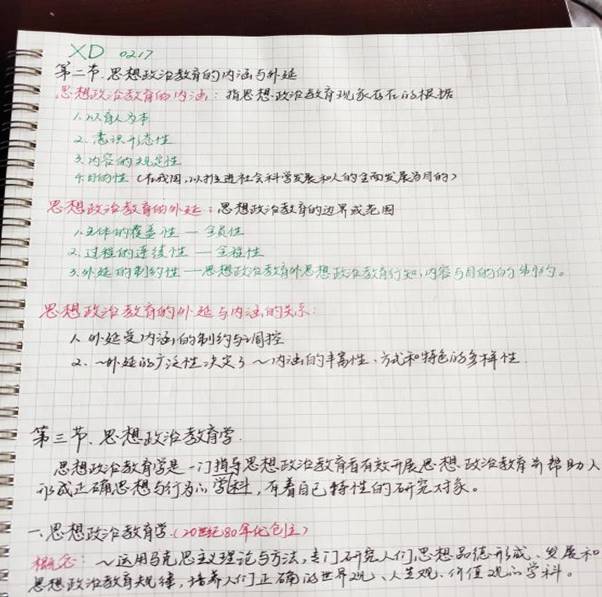 XD 0217
第二节.思想政治教育的内涵与外延
思想政治教育的内涵：指思想政治教育现象存在的根据
1.以育人为本
2.意识形态性
3.内容的规定性
4.目的性（在我国,以推进社会科学发展和人的全面发展为目的）
思想政治教育的外延：思想政治教育的边界或范围
1.主体的覆盖性 — 全员性
2.过程的连续性 — 全程性
3.外延的制约性 —思想政治教育外思想政治教育行知,内容与目的的制约。
思想政治教育的外延与内涵的关系：
1.外延受内涵的制约与调控
2.～外延的广泛性决定了～内涵的丰富性、方式和特色的多样性
第三节.思想政治教育学.
思想政治教育学是一门指导思想政治教育者有效开展思想政治教育并帮助人
形成正确思想与行为的学科，有着自己特性的研究对象。
一.思想政治教育学（20世纪80年代创立）
概念：～运用马克思主义理论与方法,专门研究人们思想品德形成、发展和
思想政治教育规律，培养人们正确的世界观、人生观、价值观的学科。